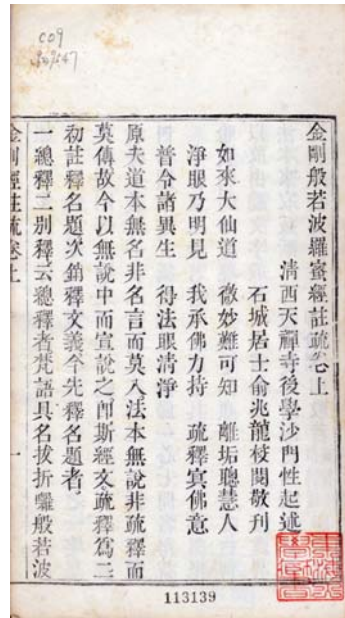 C09
金剛般若波羅蜜經註疏卷上
清西天禪寺後學沙門性起述
石城居士俞兆龍校閱敬刊
如來大仙道　微妙難可知　離垢聰慧人
淨眼乃明見　我承佛力持　疏釋寘佛意
普令諸異生　得法眼清淨
原夫道本無名非名言而莫入法本無說非疏釋而
莫傳故今以無說中而宣說之卽斯經文疏釋爲二
初註釋名題次銷釋文義今先釋名題者
一總釋二別釋云總釋者梵語具名拔折囉般若波
金剛經註疏卷上
一
113139